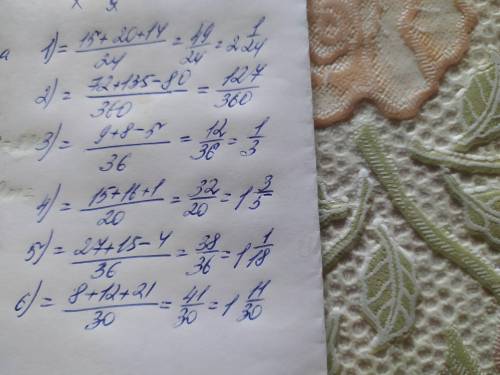 1) = 15+20+14/24 = 49/24 = 2 1/24
2) = 72+135-80/360 = 127/360
3) = 9+8-5/36 = 12/36 = 1/3
4) = 15+16+1/20 = 32/20 = 1 3/5
5) = 27+15-4/36 = 38/36 = 1 1/18
6) = 8+12+21/30 = 41/30 = 1 11/30